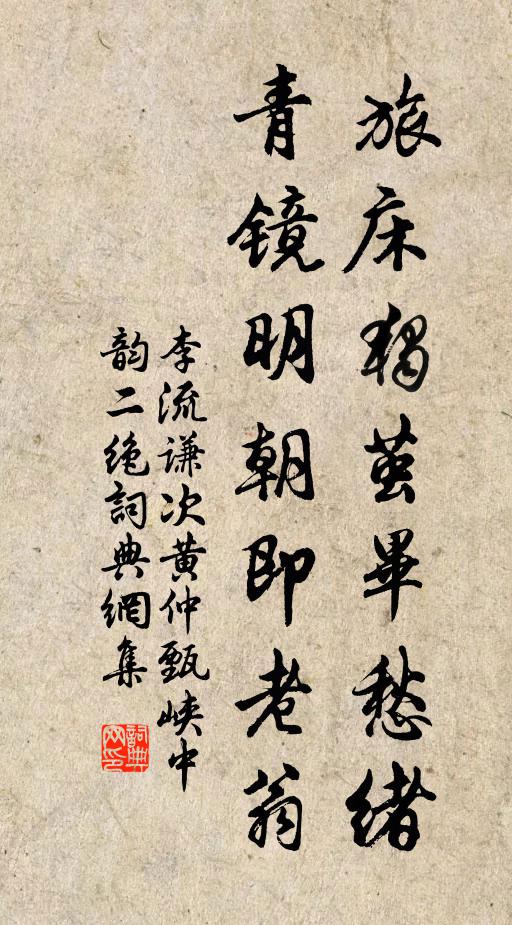 旅床獨茧畢愁緒
青镜明朝即老翁
李流谦次黄仲甄峡中
韵二绝詞典網集
詞典网印